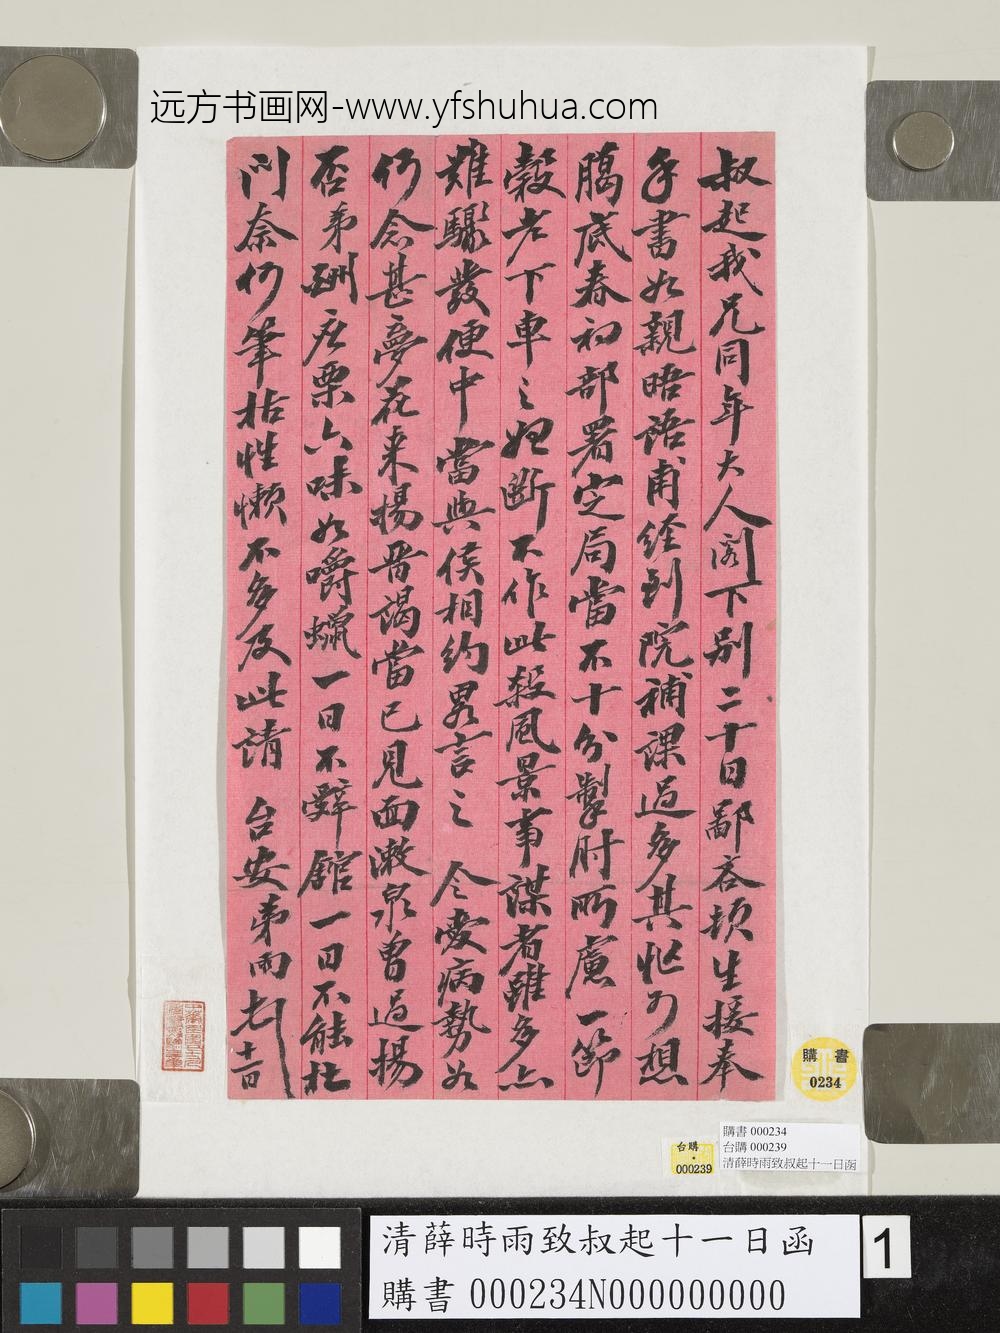 远方书画网-www.yfshuhua.com
叔起我兄同年大人阁下别二十日鄙吝顿生接奉
手书如亲晤语甫经到院补课过多其忙可想
腊底春初部署定局当不十分掣肘所虑一节
谷老下车之始断不作此杀风景事谋者虽多亦
难骤发便中当与侯相约略言之 令爱病势如
何念甚梦花来扬晋谒当已见面漱泉曾过扬
否弟酬应栗六味如嚼蜡一日不辞馆一日不能杜
门奈何笔枯性懒不多及此请 台安弟雨 十一日
購書
0234
台購
000239
購書 000234
台購 000239
清薛時雨致叔起十一日函
清薛時雨致叔起十一日函
購書 000234N000000000
1